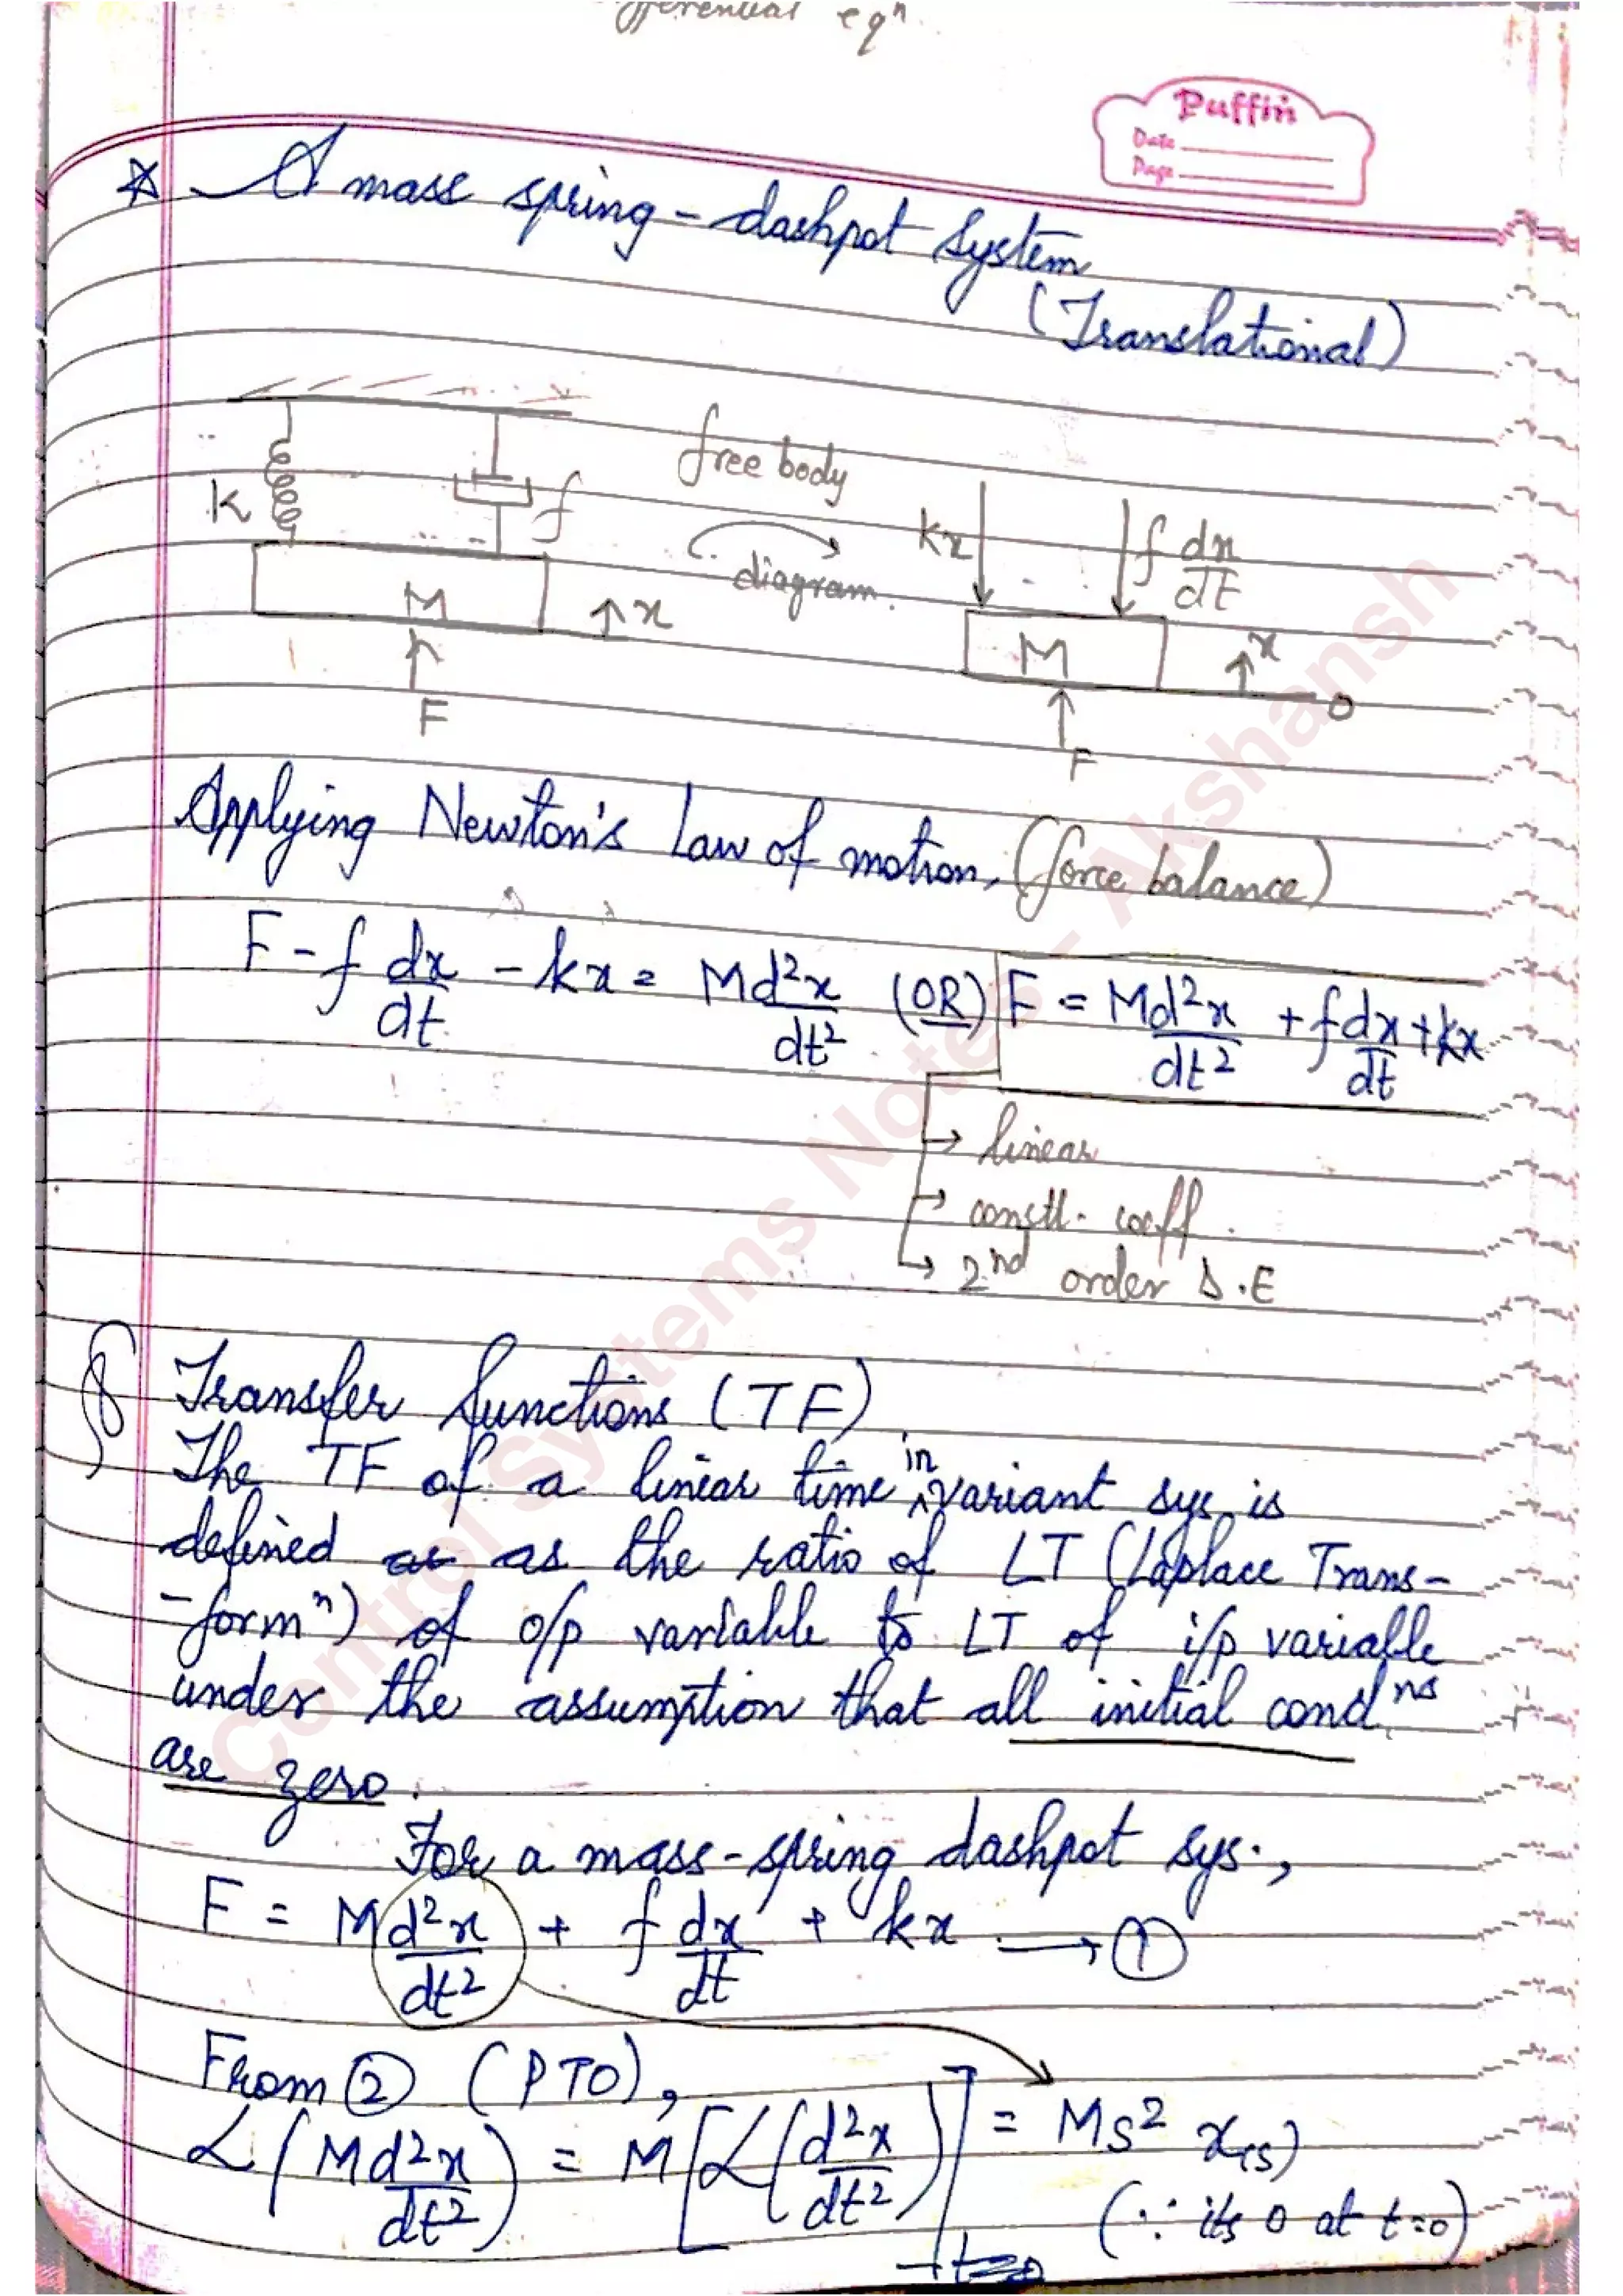 fferential eqⁿ.
Puffin
Date
Page
☆ A mass spring-dashpot system
(Translational)
k
f
M
↑x
F
free body
diagram.
kx
f dx/dt
M
↑x
0
F
Applying Newton's Law of motion, (force balance)
F - f dx/dt - kx = M d²x/dt² (OR) F = M d²x/dt² + f dx/dt + kx
→ linear
→ constt. coeff.
→ 2nd order D.E
Transfer functions (TF)
The TF of a linear time invariant sys is
defined as as the ratio of LT (Laplace Trans-
-formⁿ) of o/p variable to LT of i/p variable
under the assumption that all initial condns
are zero.
For a mass-spring dashpot sys.,
F = M d²x/dt² + f dx/dt + kx → ①
From ② (PTO),
ℒ(M d²x/dt²) = M[ℒ(d²x/dt²)] = Ms² x(s)
t=0
(∵ its 0 at t=0)
Control Systems Notes - Akshansh